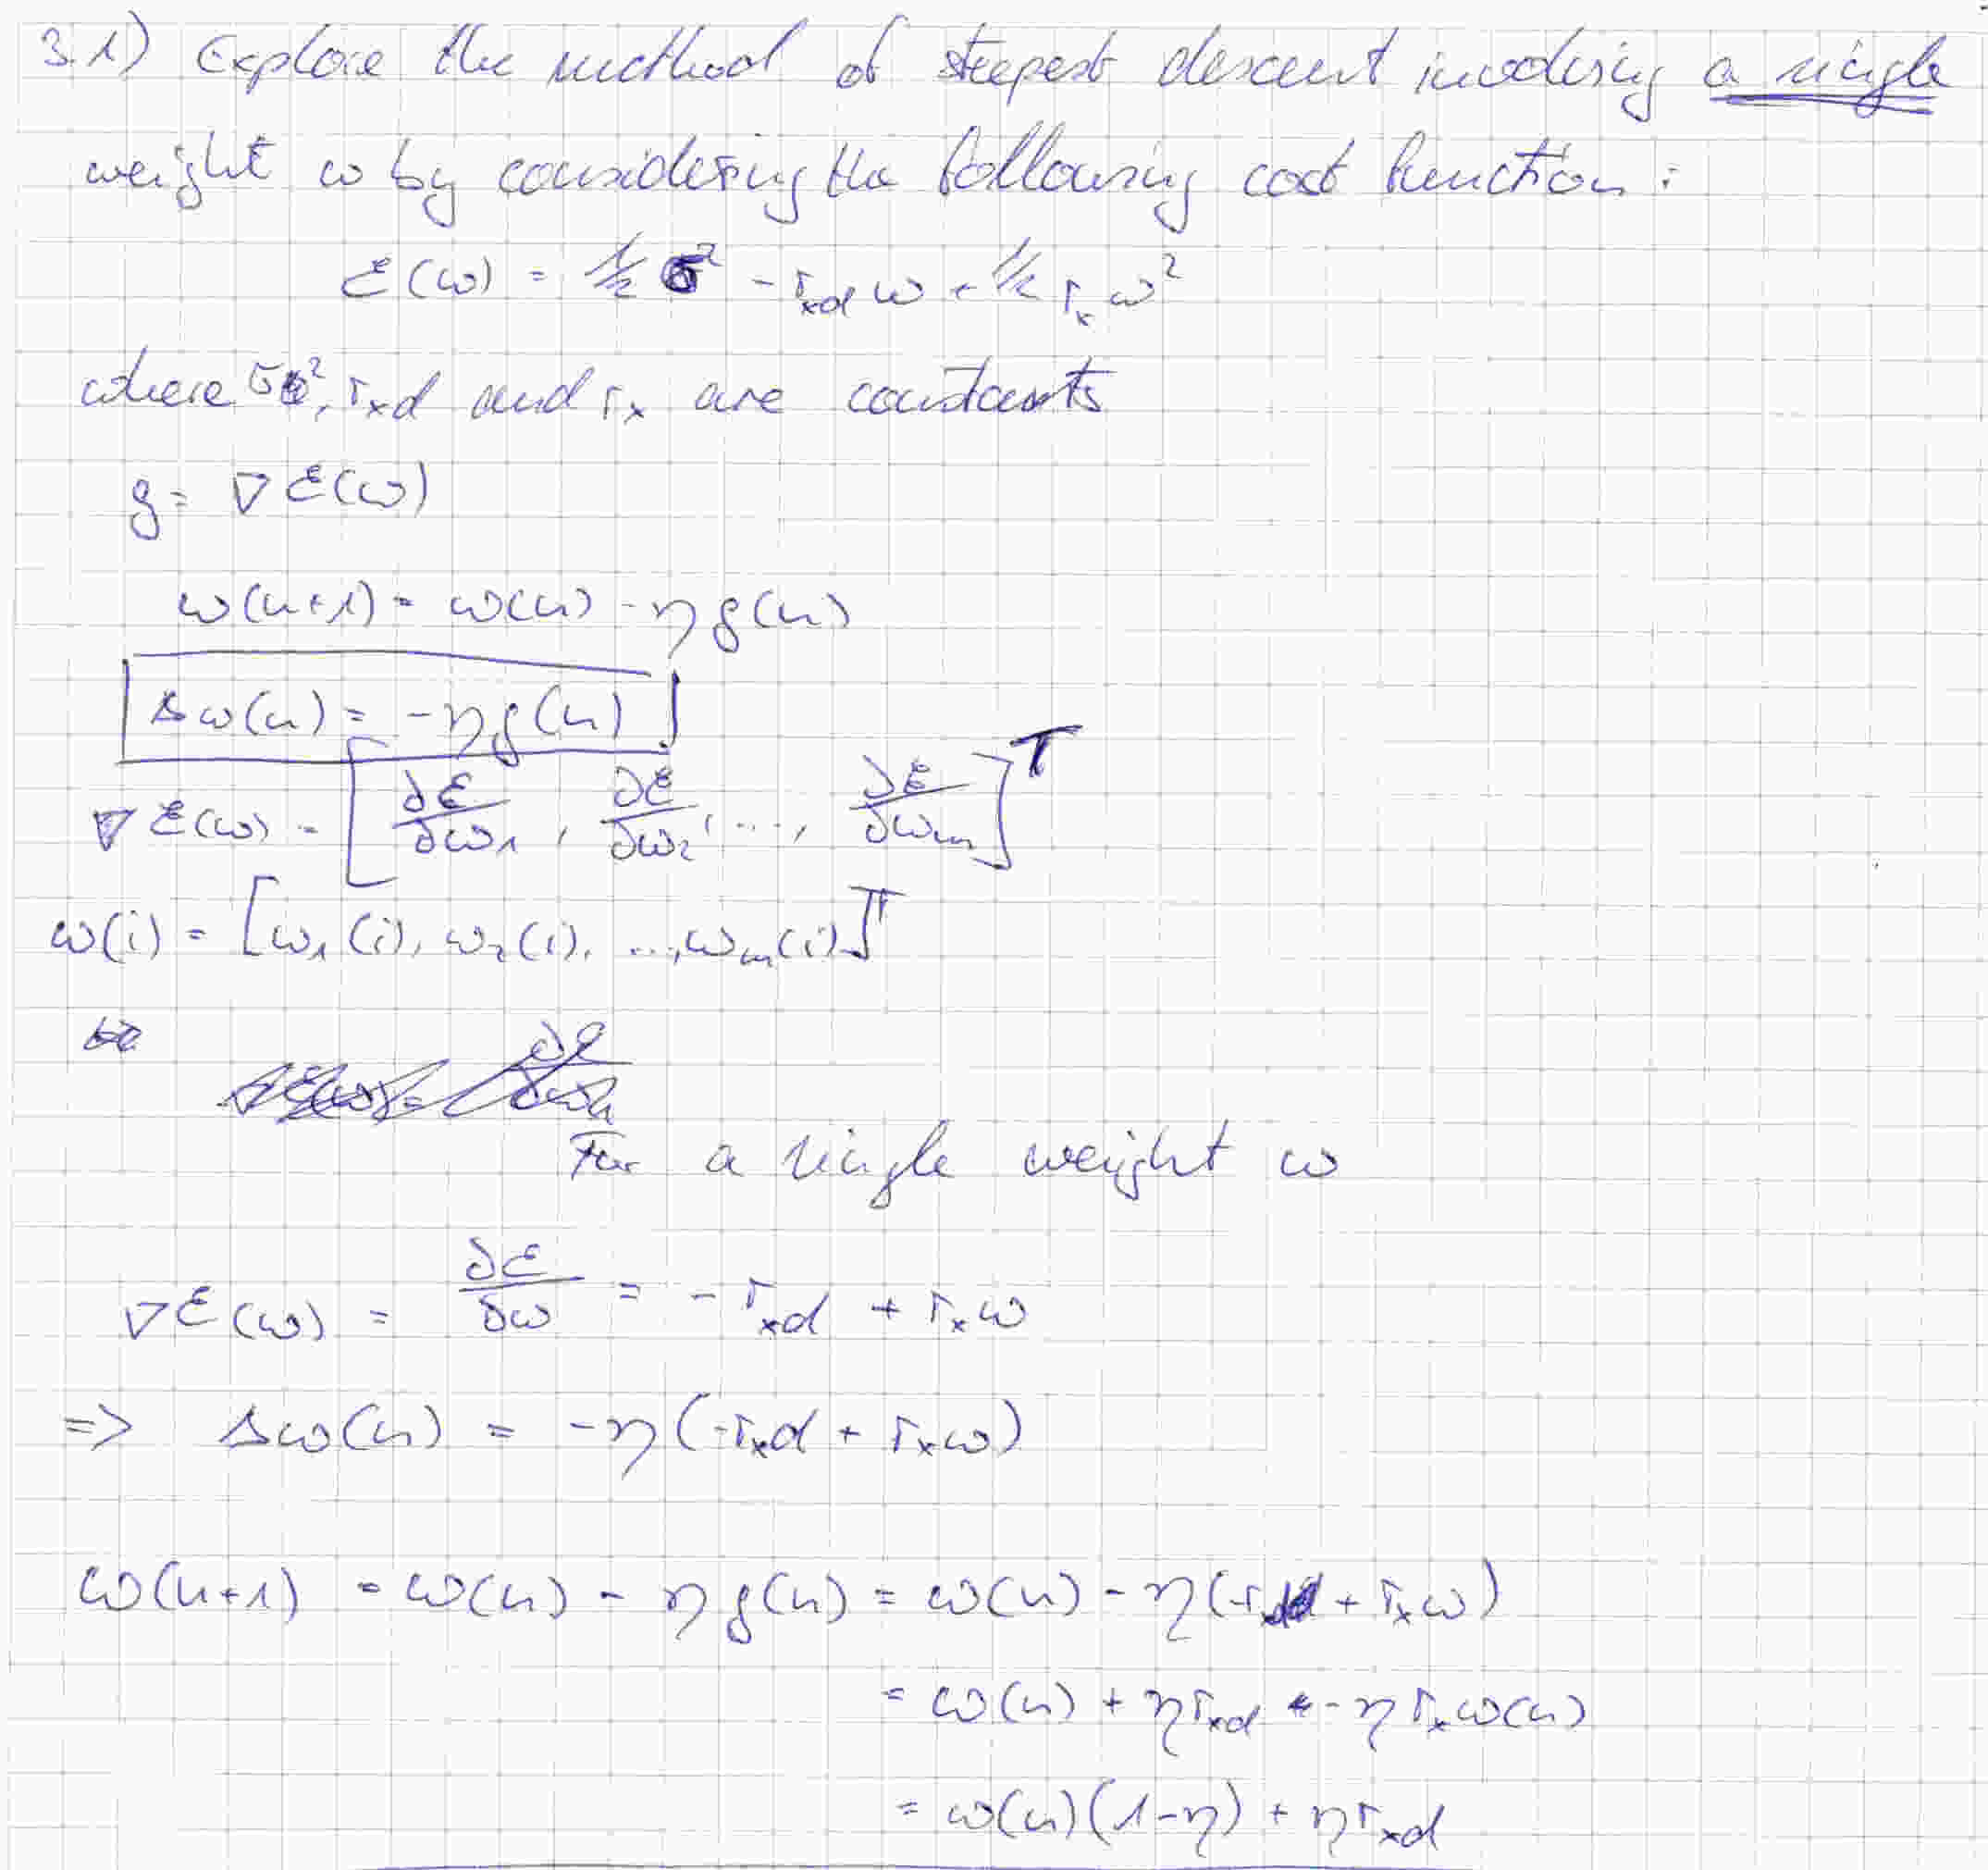 3.1) Explore the method of steepest descent involving a single
weight w by considering the following cost function:
ℰ(w) = 1/2 σ² - r_xd w + 1/2 r_x w²
where σ², r_xd and r_x are constants
g = ∇ℰ(w)
w(n+1) = w(n) - η g(n)
Δw(n) = -η g(n)
∇ℰ(w) = [∂ℰ/∂w₁, ∂ℰ/∂w₂, ..., ∂ℰ/∂w_m]ᵀ
w(i) = [w₁(i), w₂(i), ..., w_m(i)]ᵀ
For a single weight w
∇ℰ(w) = ∂ℰ/∂w = - r_xd + r_x w
=> Δw(n) = -η(-r_xd + r_x w)
w(n+1) = w(n) - η g(n) = w(n) - η(-r_xd + r_x w)
= w(n) + η r_xd - η r_x w(n)
= w(n)(1-η) + η r_xd